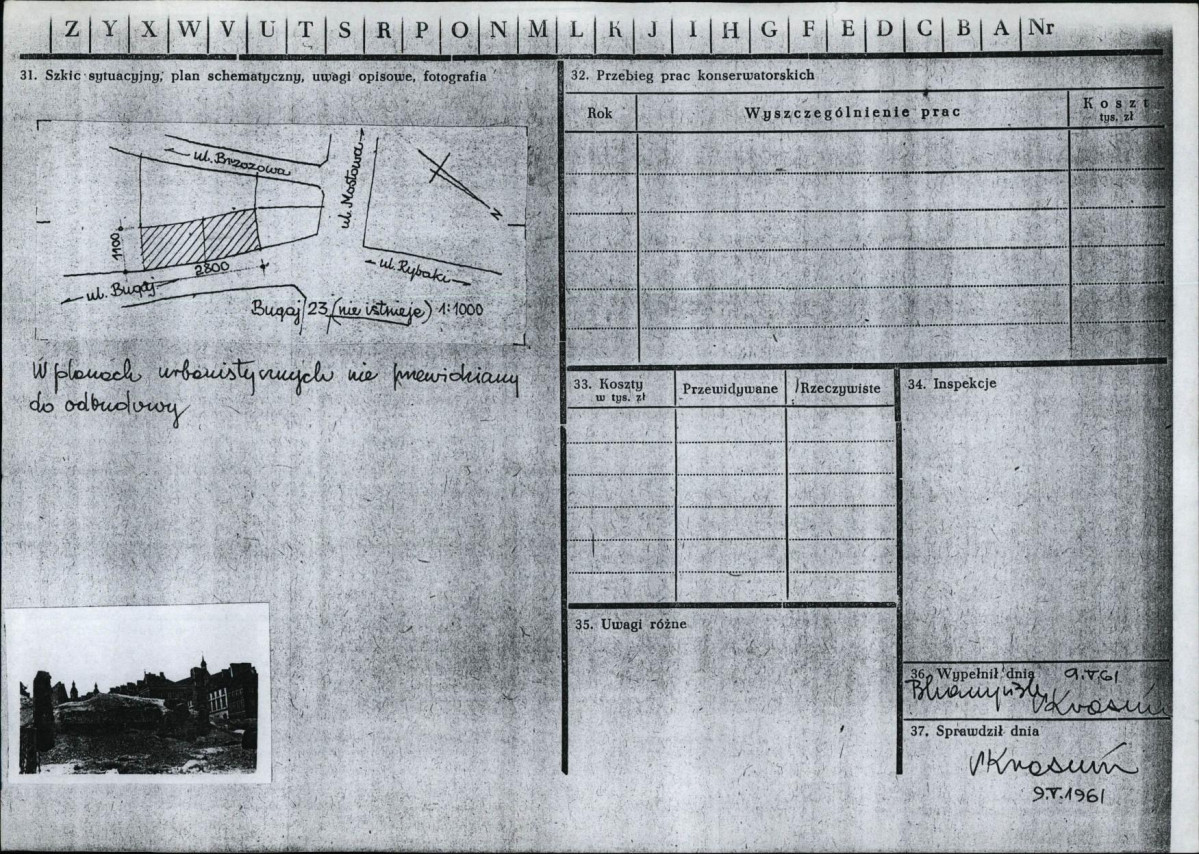 Z Y X W V U T S R P O N M L K J I H G F E D C B A Nr
31. Szkic sytuacyjny, plan schematyczny, uwagi opisowe, fotografia
ul. Brzozowa
ul. Mostowa
N
1100
2800
ul. Bugaj
ul. Rybaki
Bugaj 23 (nie istnieje) 1:1000
W planach urbanistycznych nie przewidziany
do odbudowy
32. Przebieg prac konserwatorskich
Rok
Wyszczególnienie prac
Koszt
tys. zł
33. Koszty
w tys. zł
Przewidywane
Rzeczywiste
34. Inspekcje
35. Uwagi różne
36. Wypełnił dnia 9.V.61
37. Sprawdził dnia
9.V.1961